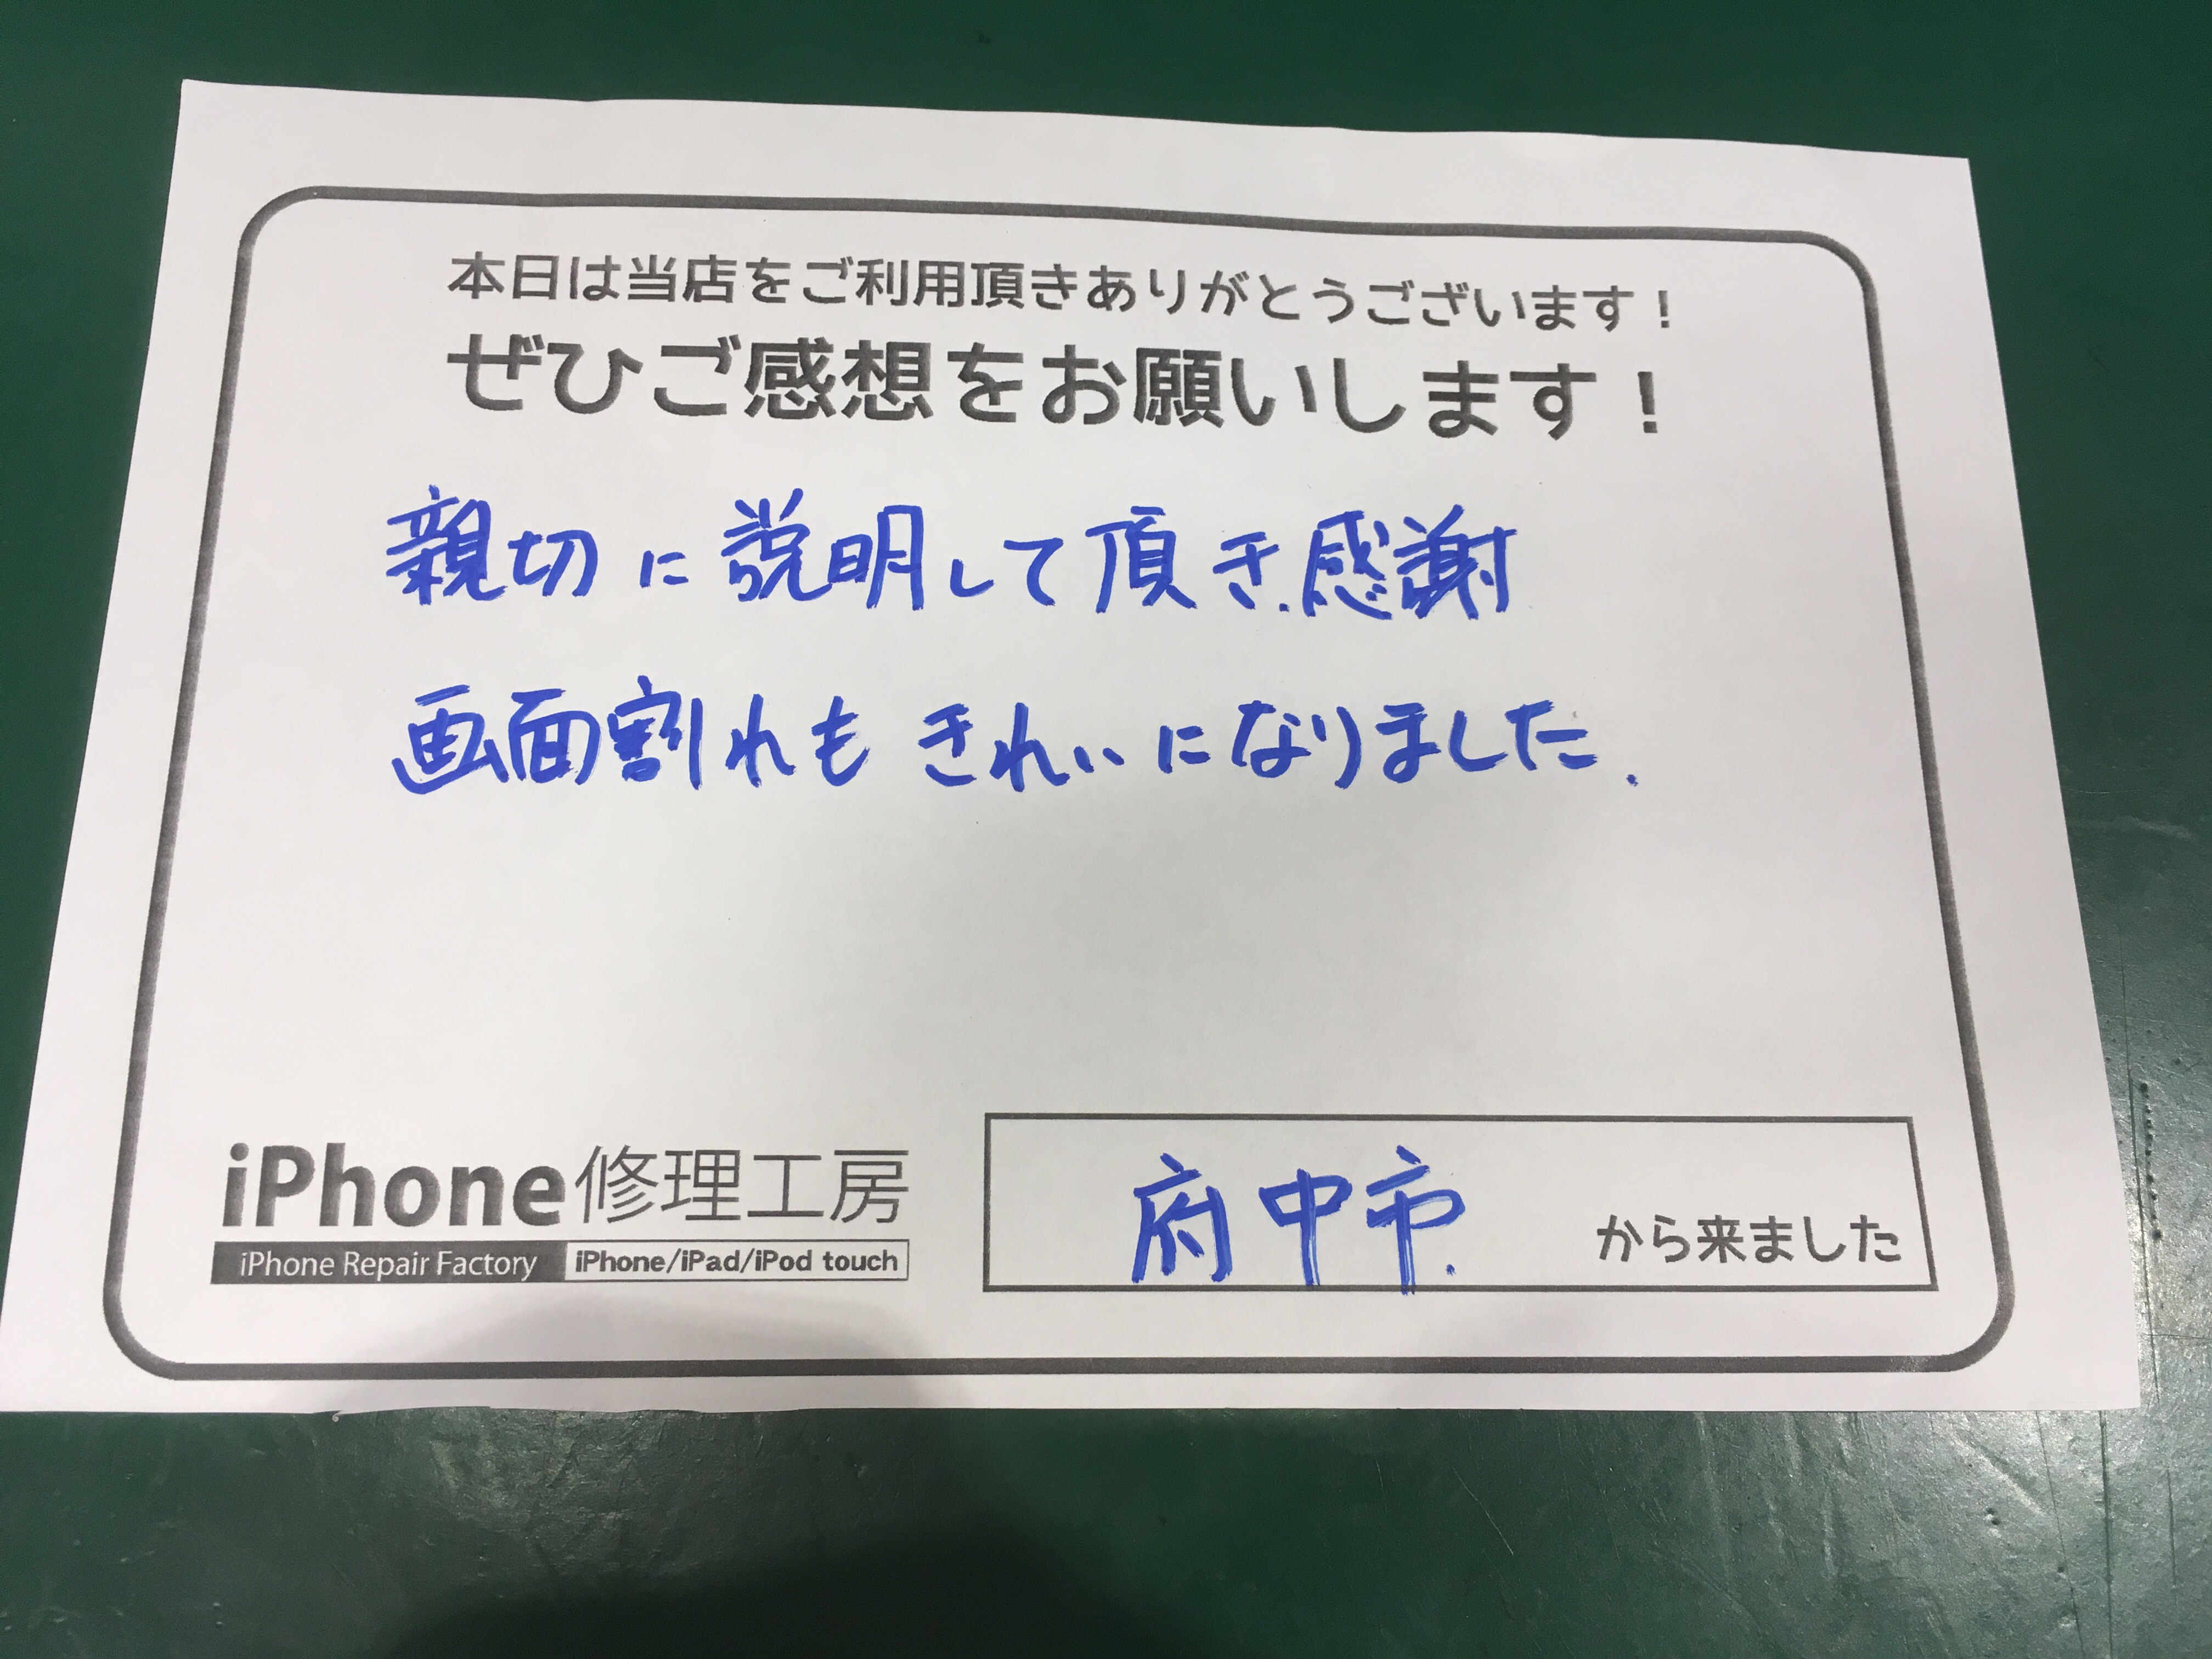 本日は当店をご利用頂きありがとうございます！
ぜひご感想をお願いします！
親切に説明して頂き.感謝
画面割れもきれいになりました.
iPhone修理工房
iPhone Repair Factory iPhone/iPad/iPod touch
府中市. から来ました